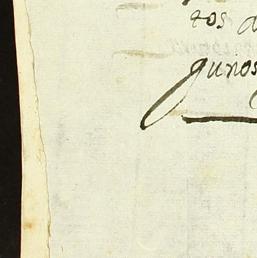 tos a
gunos